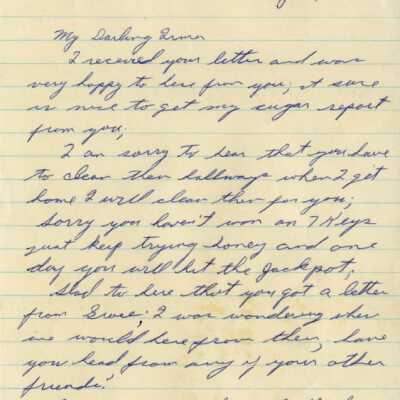 My Darling Irma
I received your letter and was
very happy to here from you, it sure
is nice to get my sugar report
from you,
I am sorry to hear that you have
to clean them hallways when I get
home I will clean them for you;
Sorry you haven't won on 7 Keys
just keep trying honey and one
day you will hit the Jackpot,
Glad to here that you got a letter
from I was wondering when
we would here from them, have
you head from any of your other
friends?